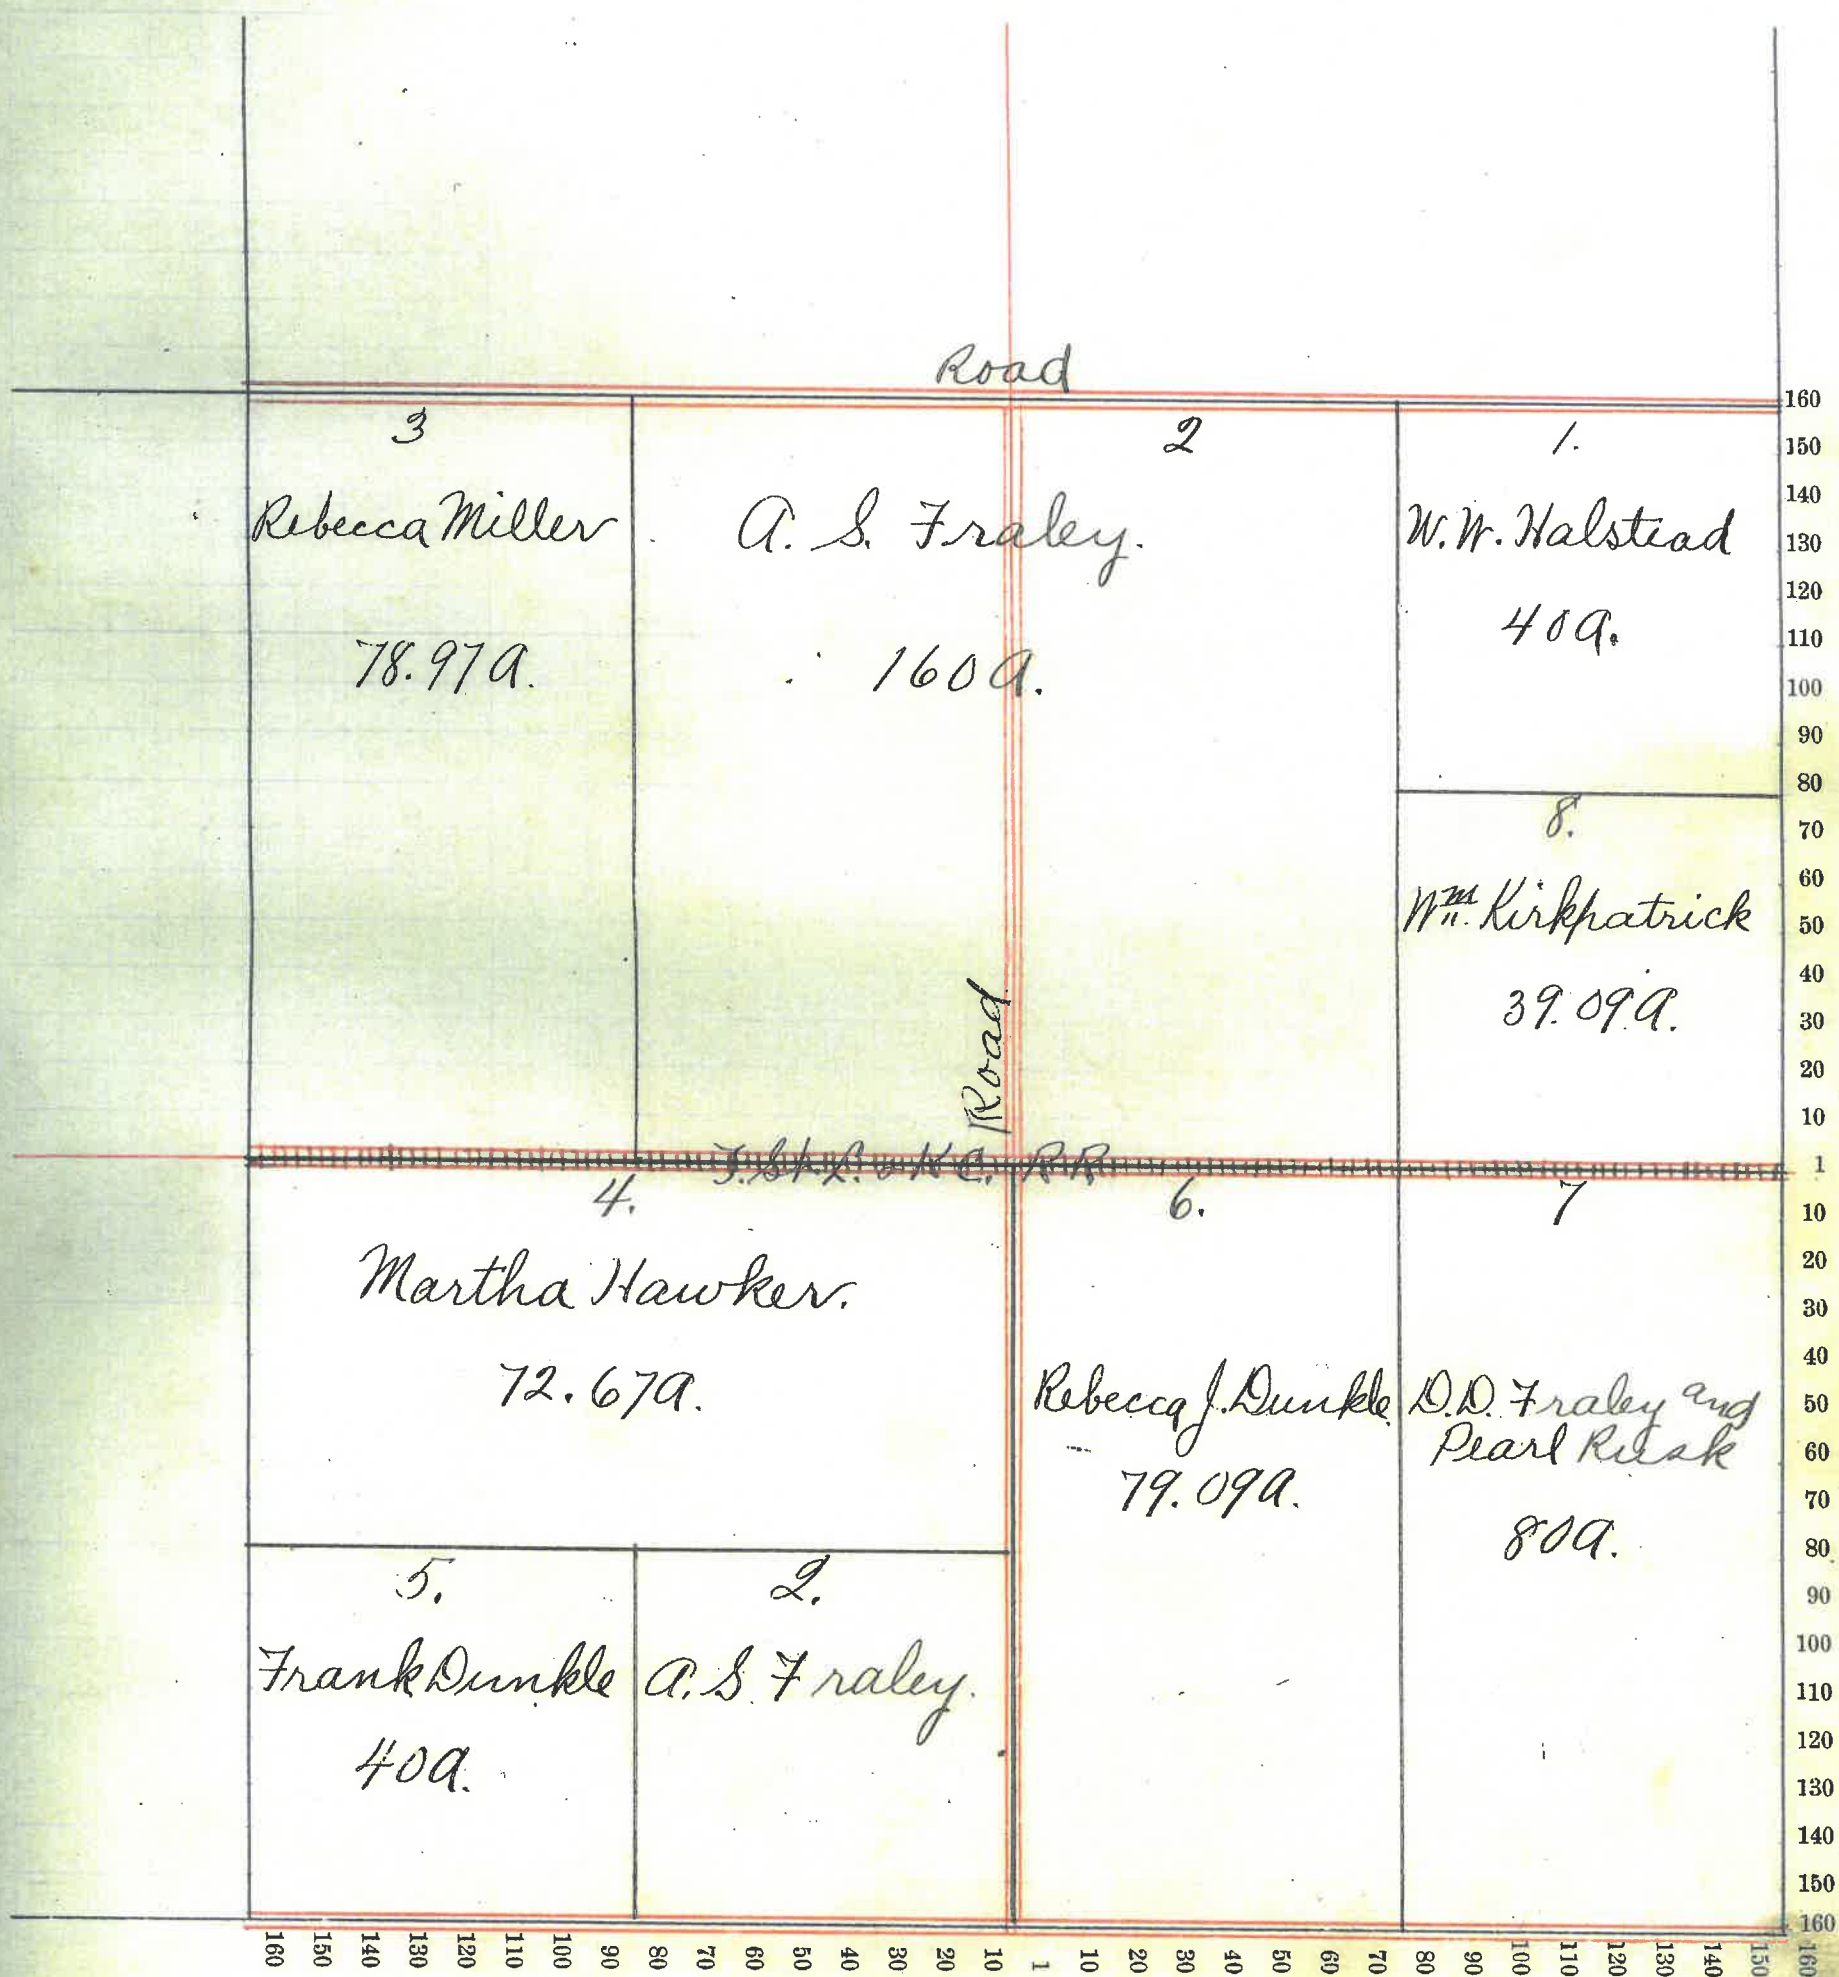 Road
3
Rebecca Miller
78.97 a.
2
A. S. Fraley.
160 a.
1.
W. W. Halstead
40 a.
8.
Wm. Kirkpatrick
39.09 a.
Road
T. St. L. & K. C. R. R.
4.
Martha Hawker.
72.67 a.
6.
Rebecca J. Dunkle
79.09 a.
7
D. D. Fraley and
Pearl Rusk
80 a.
5.
Frank Dunkle
40 a.
2.
A. S. Fraley.
160
150
140
130
120
110
100
90
80
70
60
50
40
30
20
10
1
10
20
30
40
50
60
70
80
90
100
110
120
130
140
150
160
160 150 140 130 120 110 100 90 80 70 60 50 40 30 20 10 1 10 20 30 40 50 60 70 80 90 100 110 120 130 140 150 160